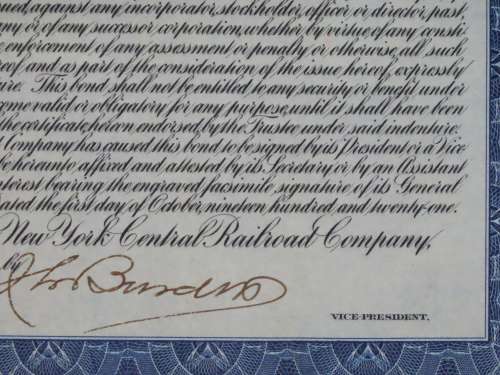 ued, against any incorporator, stockholder, officer or director, past,
any or, of any successor corporation, whether by virtue of any consti
e enforcement of any assessment or penalty or otherwise, all such
reof and as part of the consideration of the issue hereof, expressly
ure. This bond shall not be entitled to any security or benefit under
ome valid or obligatory for any purpose, until it shall have been
the certificate, hereon endorsed, by the Trustee under said indenture.
Company has caused this bond to be signed by its President or a Vice
be hereunto affixed, and attested by its Secretary or by an Assistant
terest bearing the engraved facsimile signature of its General
ated the first day of October, nineteen hundred and twenty-one.
New York Central Railroad Company,
by
VICE-PRESIDENT.